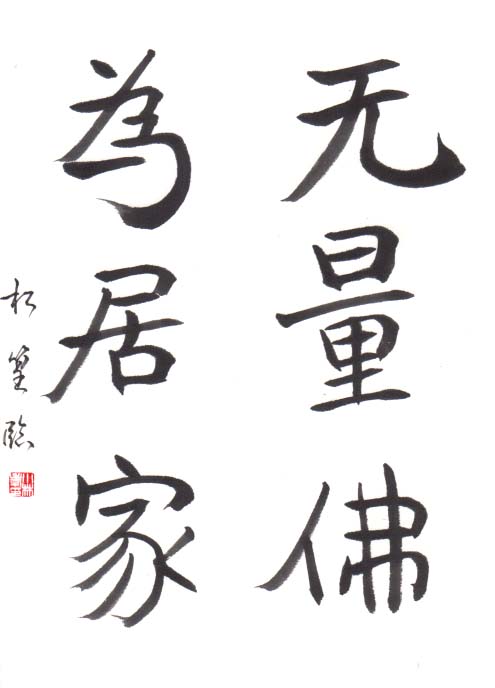 无量佛
為居家
松篁臨